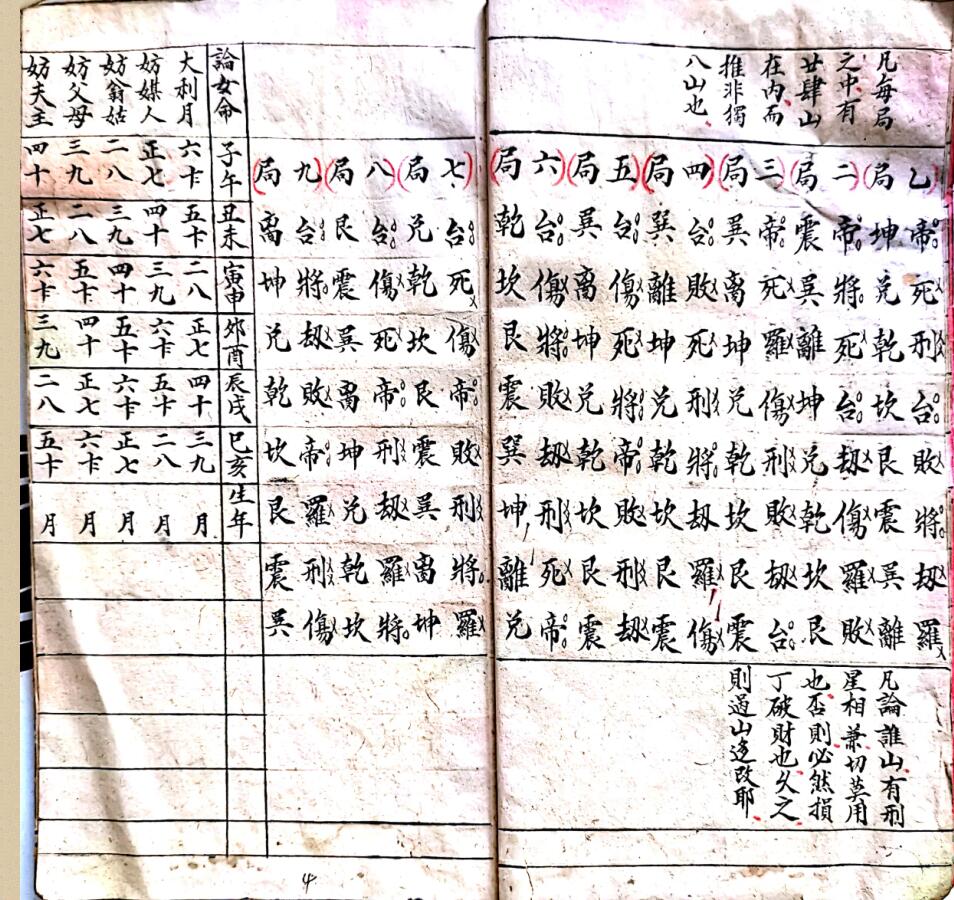 凡每局
之中有
廿肆山
在內而
推非獨
八山也
乙帝死刑台敗將刼羅
局坤兑乾坎艮震巽離
二帝將死台刼傷羅敗
局震巽離坤兑乾坎艮
三帝死羅傷刑敗刼台
局巽离坤兑乾坎艮震
四台敗死刑將刼羅傷
局巽離坤兑乾坎艮震
五台傷死將帝敗刑刼
局巽离坤兑乾坎艮震
六台傷將敗刼刑死帝
局乾坎艮震巽坤離兑
凡論誰山有刑
星相兼切莫用
也否則必然損
丁破財也久之
則過山迯改耶
七台死傷帝敗刑將羅
局兑乾坎艮震巽离坤
八台傷死帝刑刼羅將
局艮震巽离坤兑乾坎
九台將刼敗帝羅刑傷
局离坤兑乾坎艮震巽
論女命 子午 丑未 寅申 卯酉 辰戌 巳亥 生年
大利月 六卡 五卡 二八 正七 四十 三九 月
妨媒人 正七 四十 三九 六卡 五卡 二八 月
妨翁姑 二八 三九 四十 五卡 六卡 正七 月
妨父母 三九 二八 五卡 四十 正七 六卡 月
妨夫主 四十 正七 六卡 三九 二八 五卡 月
4